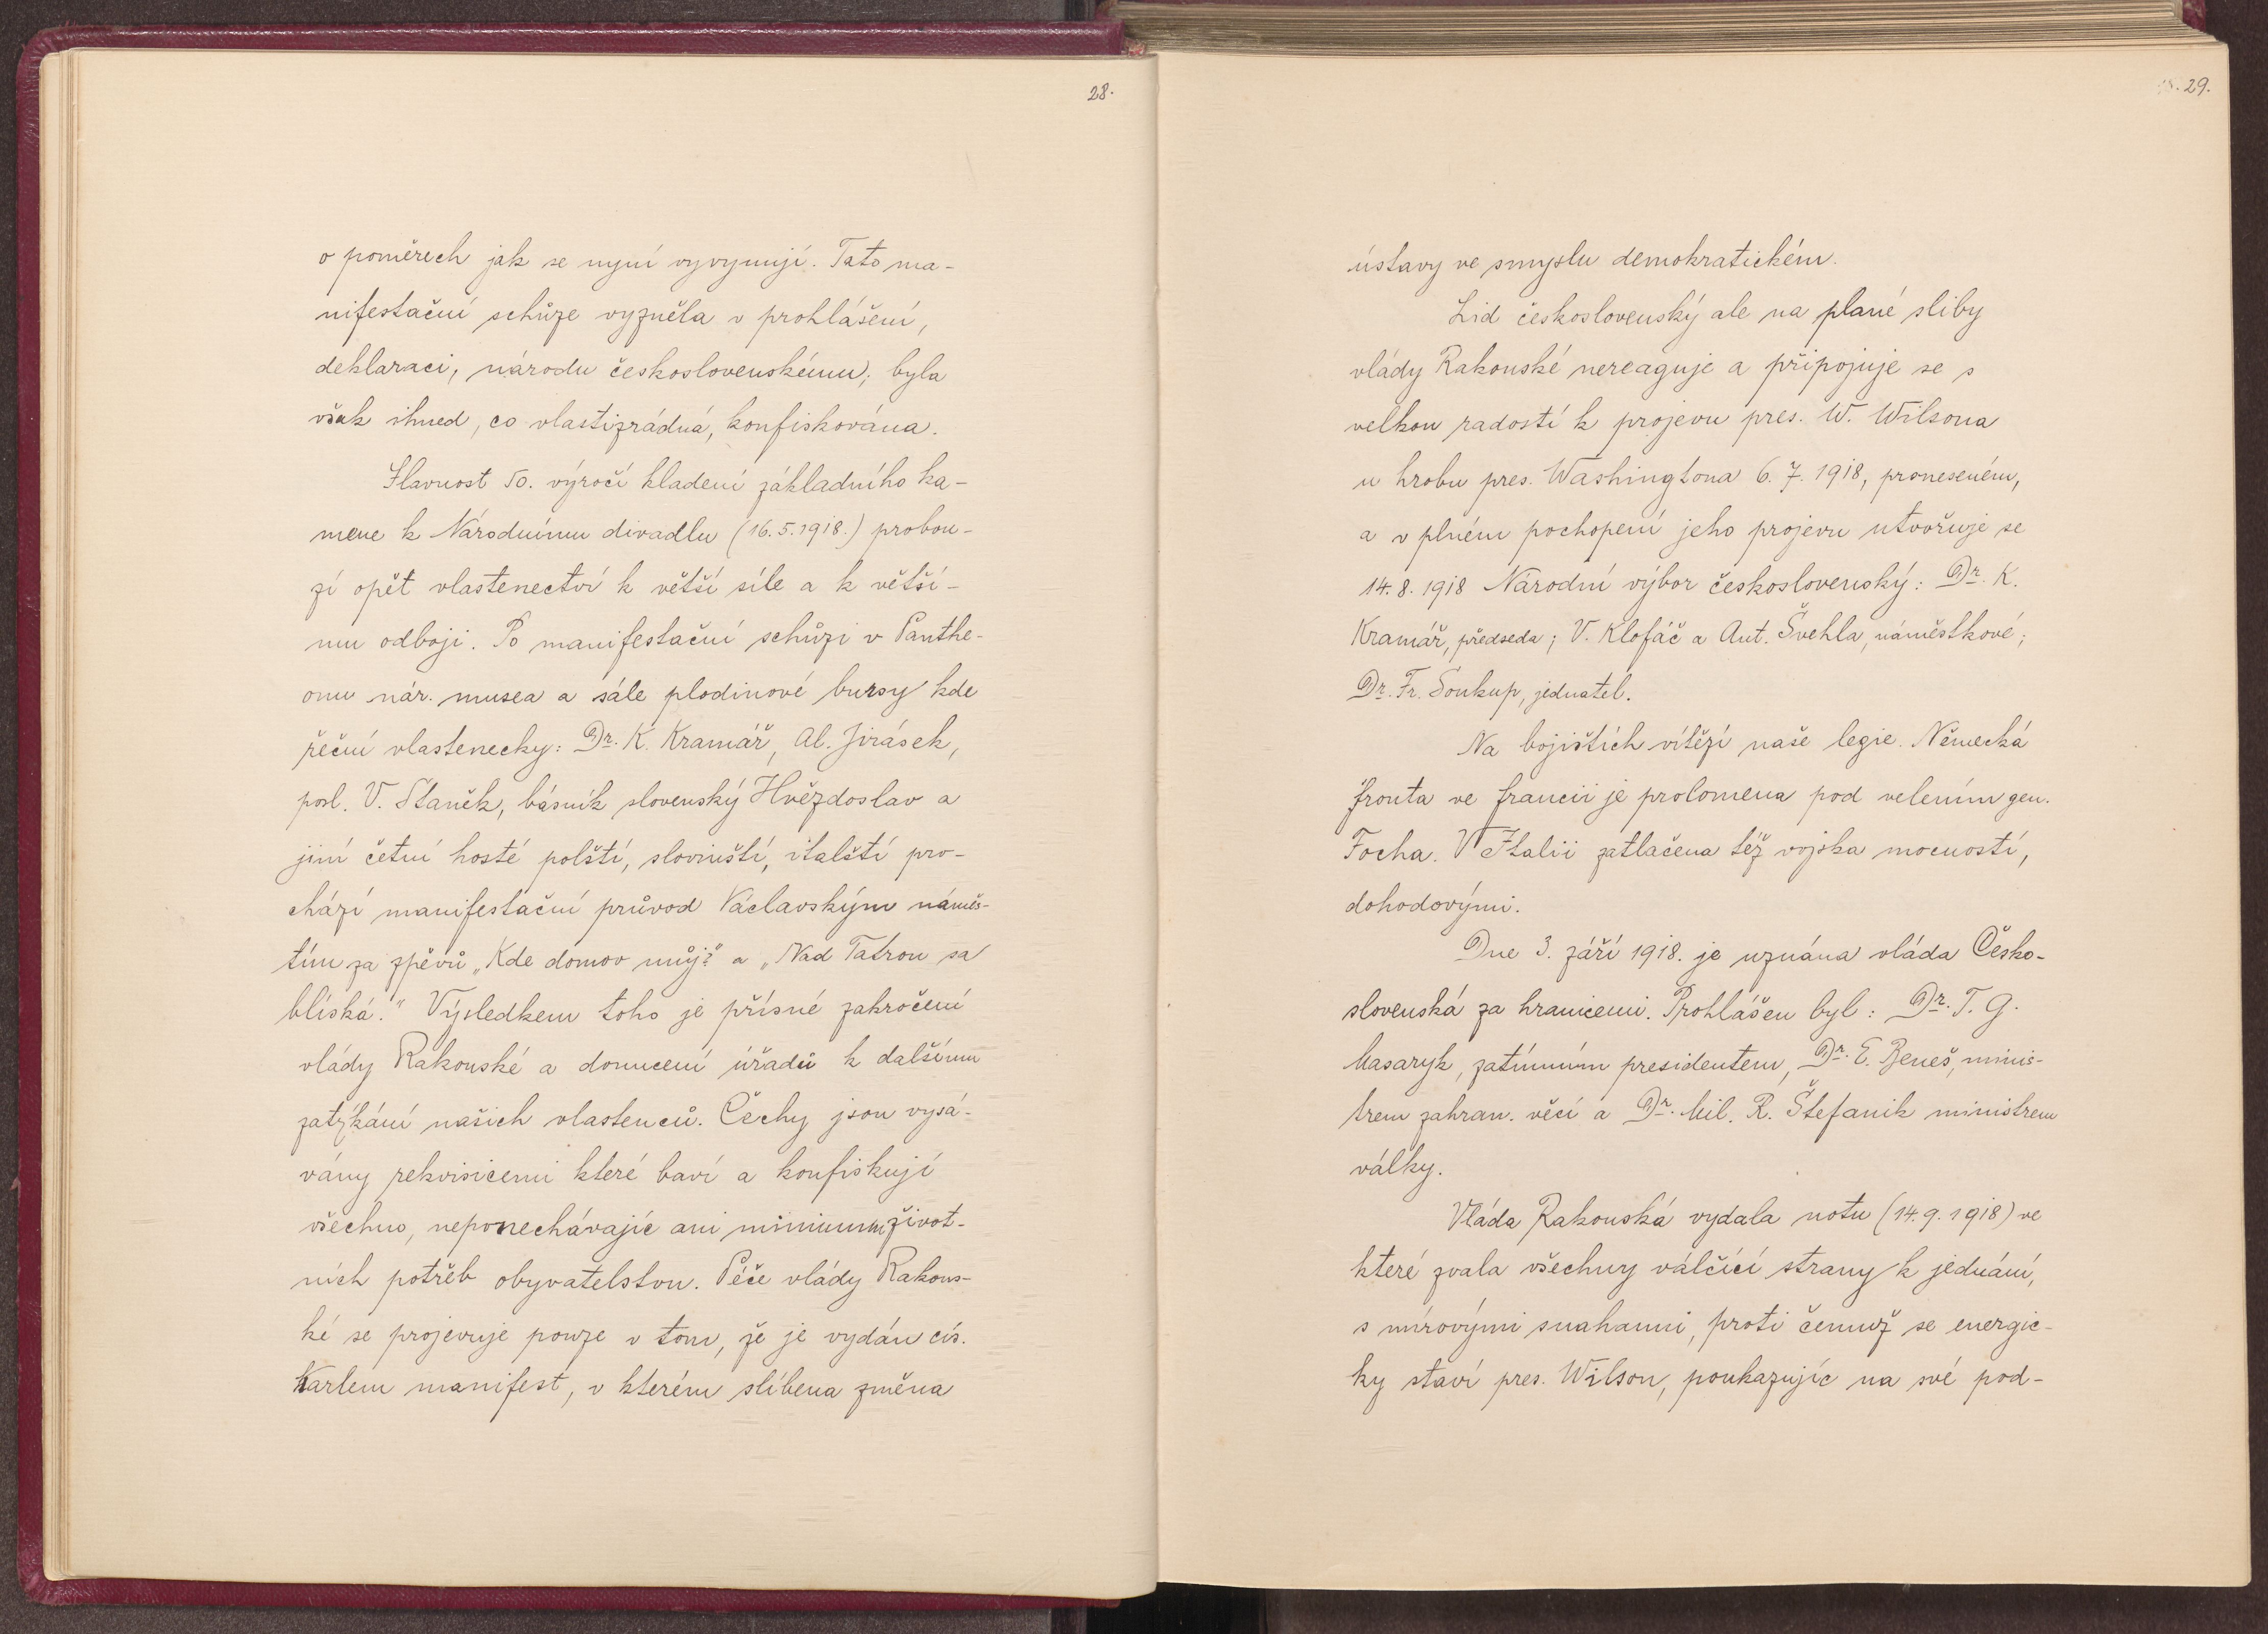 28.
o poměrech jak se nyní vyvynují. Tato ma-
nifestační schůze vyzněla v prohlášení,
deklaraci, národu československému; byla
však ihned, co vlastizrádná, konfiskována.
Slavnost 50. výročí kladení základního ka-
mene k Národnímu divadlu (16.5.1918.) probou-
zí opět vlastenectví k větší síle a k větší-
mu odboji. Po manifestační schůzi v Panthe-
onu nár. musea a sále plodinové bursy kde
řeční vlastenecky: Dr. K. Kramář, Al. Jirásek,
posl. V. Staněk, básník slovenský Hvězdoslav a
jiní četní hosté polští, slovinští, italští pro-
chází manifestační průvod Václavským náměs-
tím za zpěvů „Kde domov můj?" a „Nad Tatrou sa
blíská." Výsledkem toho je přísné zakročení
vlády Rakouské a donucení úřadů k dalšímu
zatýkání našich vlastenců. Čechy jsou vysá-
vány rekvisicemi které baví a konfiskují
všechno, neponechávajíc ani minimum život-
ních potřeb obyvatelstvu. Péče vlády Rakous-
ké se projevuje pouze v tom, že je vydán cís.
Karlem manifest, v kterém slíbena změna
29.
ústavy ve smyslu demokratickém.
Lid československý ale na plané sliby
vlády Rakouské nereaguje a připojuje se s
velkou radostí k projevu pres. W. Wilsona
u hrobu pres. Washingtona 6. 7. 1918, proneseném,
a v plném pochopení jeho projevu utvořuje se
14. 8. 1918 Národní výbor československý: Dr. K.
Kramář, předseda; V. Klofáč a Ant. Švehla, náměstkové;
Dr. Fr. Soukup, jednatel.
Na bojištích vítězí naše legie. Německá
fronta ve francii je prolomena pod velením gen.
Focha. V Italii zatlačena též vojska mocností,
dohodovými.
Dne 3. září 1918. je uznána vláda Česko-
slovenská za hranicemi. Prohlášen byl: Dr. T. G.
Masaryk, zatímním presidentem, Dr. E. Beneš, minis-
trem zahran. věcí a Dr. Mil. R. Štefanik ministrem
války.
Vláda Rakouská vydala notu (14. 9. 1918) ve
které zvala všechny válčící strany k jednání,
s mírovými snahami, proti čemuž se energic-
ky staví pres. Wilson, poukazujíc na své pod-